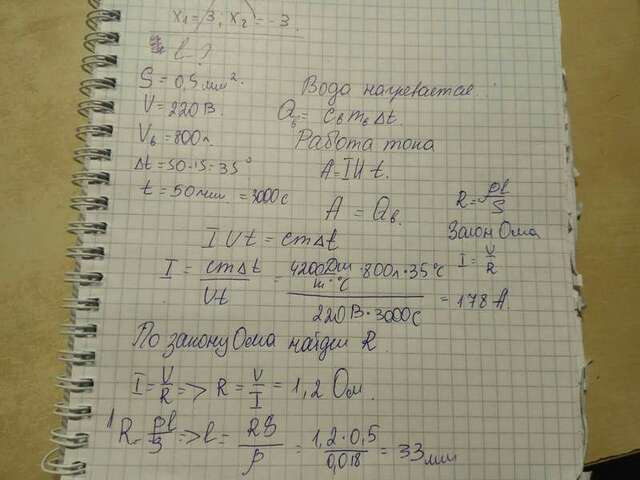 x₁ = 3, x₂ = -3.
l?
S = 0,5 мм².
V = 220 В.
V_в = 800 л.
Δt = 50-15 = 35°
t = 50 мин. = 3000 с
Вода нагревается.
Q_в = c_в m_в Δt
Работа тока
A = IUt.
A = Q_в.
R = ρl/S
Закон Ома
I = V/R
IUt = cmΔt
I = cmΔt/Vt = 4200 Дж/кг·°C · 800 л · 35°C / 220 В · 3000 с = 178 А.
По закону Ома найдем R.
I = V/R => R = V/I = 1,2 Ом.
R = ρl/S => l = RS/ρ = 1,2·0,5/0,018 = 33 мм